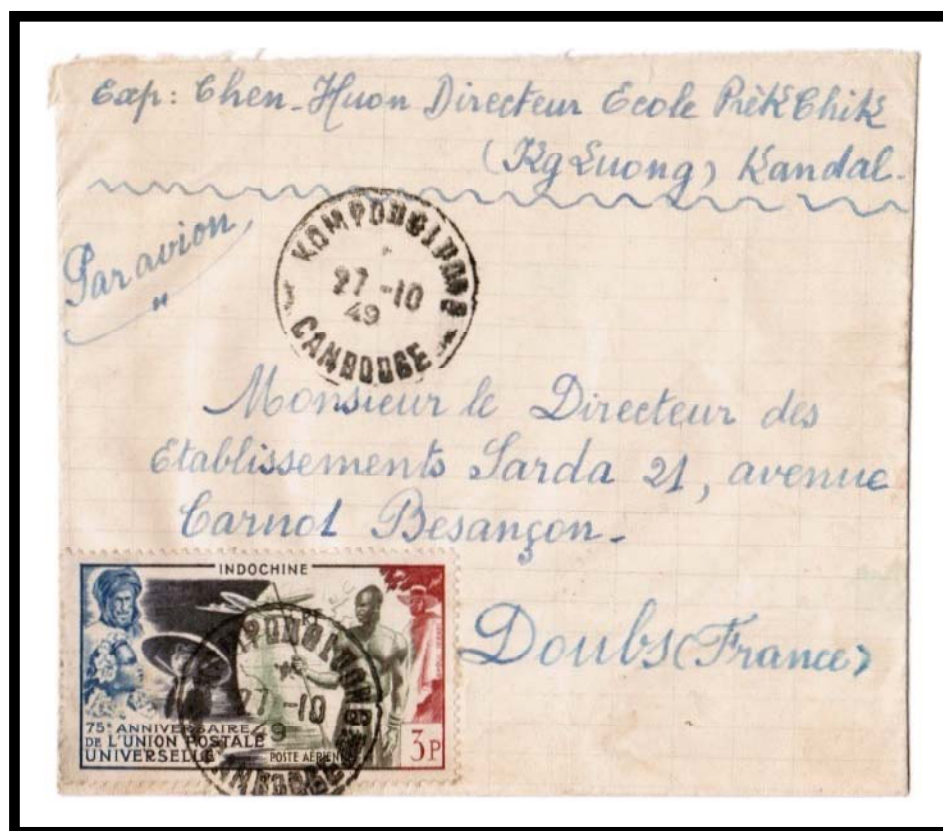 Exp: Chen-Huon Directeur Ecole Prèk Chik
(Kg Luong) Kandal.
Par avion
KOMPONG LUONG
27 -10
49
CAMBODGE
Monsieur le Directeur des
Etablissements Sarda 21, avenue
Carnot Besançon-
Doubs (France)
INDOCHINE
27 -10
49
75e ANNIVERSAIRE
DE L'UNION POSTALE
UNIVERSELLE
POSTE AÉRIENNE
3P